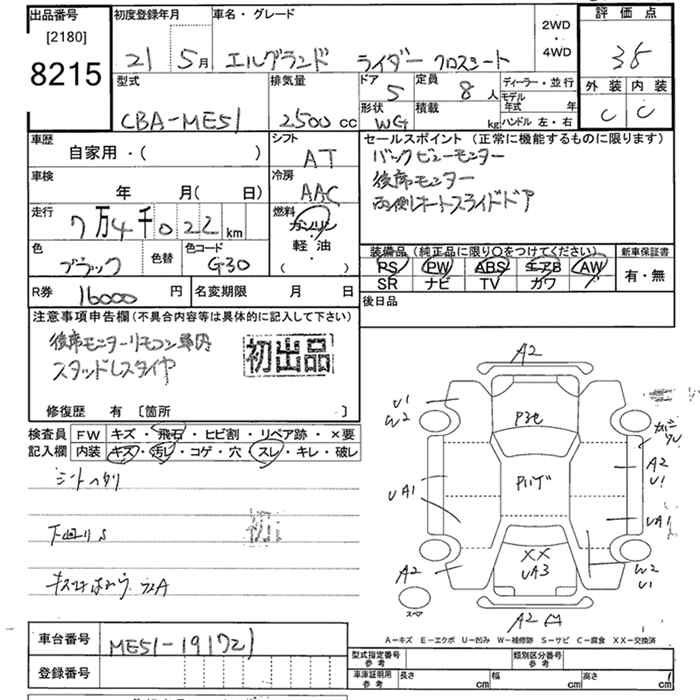 出品番号
[2180]
8215
初度登録年月
21 5月
車名・グレード
エルグランド ライダー
2WD
・
4WD
評価点
外装 内装
C C
型式
CBA-ME51
排気量
2500 cc
ドア
5
定員
8 人
形状
WG
積載
kg
ディーラー・並行
モデル年式 年
ハンドル 左・右
車歴
自家用・( )
シフト
AT
車検
年 月( 日)
冷房
AAC
走行
7万4千022km
燃料
ガソリン
軽油
( ・ )
色
ブラック
色替
色コード
G30
R券
16000 円
名変期限 月 日
セールスポイント (正常に機能するものに限ります)
バックビューモンター
後席モニター
両側オートスライドドア
装備品(純正品に限り○をつけてください)
新車保証書
PS PW ABS エアB AW
SR ナビ TV カワ
有・無
後日品
注意事項申告欄(不具合内容等は具体的に記入して下さい)
後席モニターリモコン車内
スタッドレスタイヤ
初出品
修復歴 有 [箇所 ]
検査員
記入欄
FW キズ・飛石・ヒビ割・リペア跡・×要
内装 キズ・汚レ・コゲ・穴・スレ・キレ・破レ
シートヘタリ
下回りS
車台番号
ME51-191721
登録番号
A2
U1
W2
P3e
A2
U1
UA1
UA1
XX
UA3
A2
W2
U1
スペア
A2
A-キズ E-エクボ U-凹み W-補修跡 S-サビ C-腐食 XX-交換済
型式指定番号
参考
類別区分番号
参考
車庫証明用
参考
長さ cm 幅 cm 高さ cm